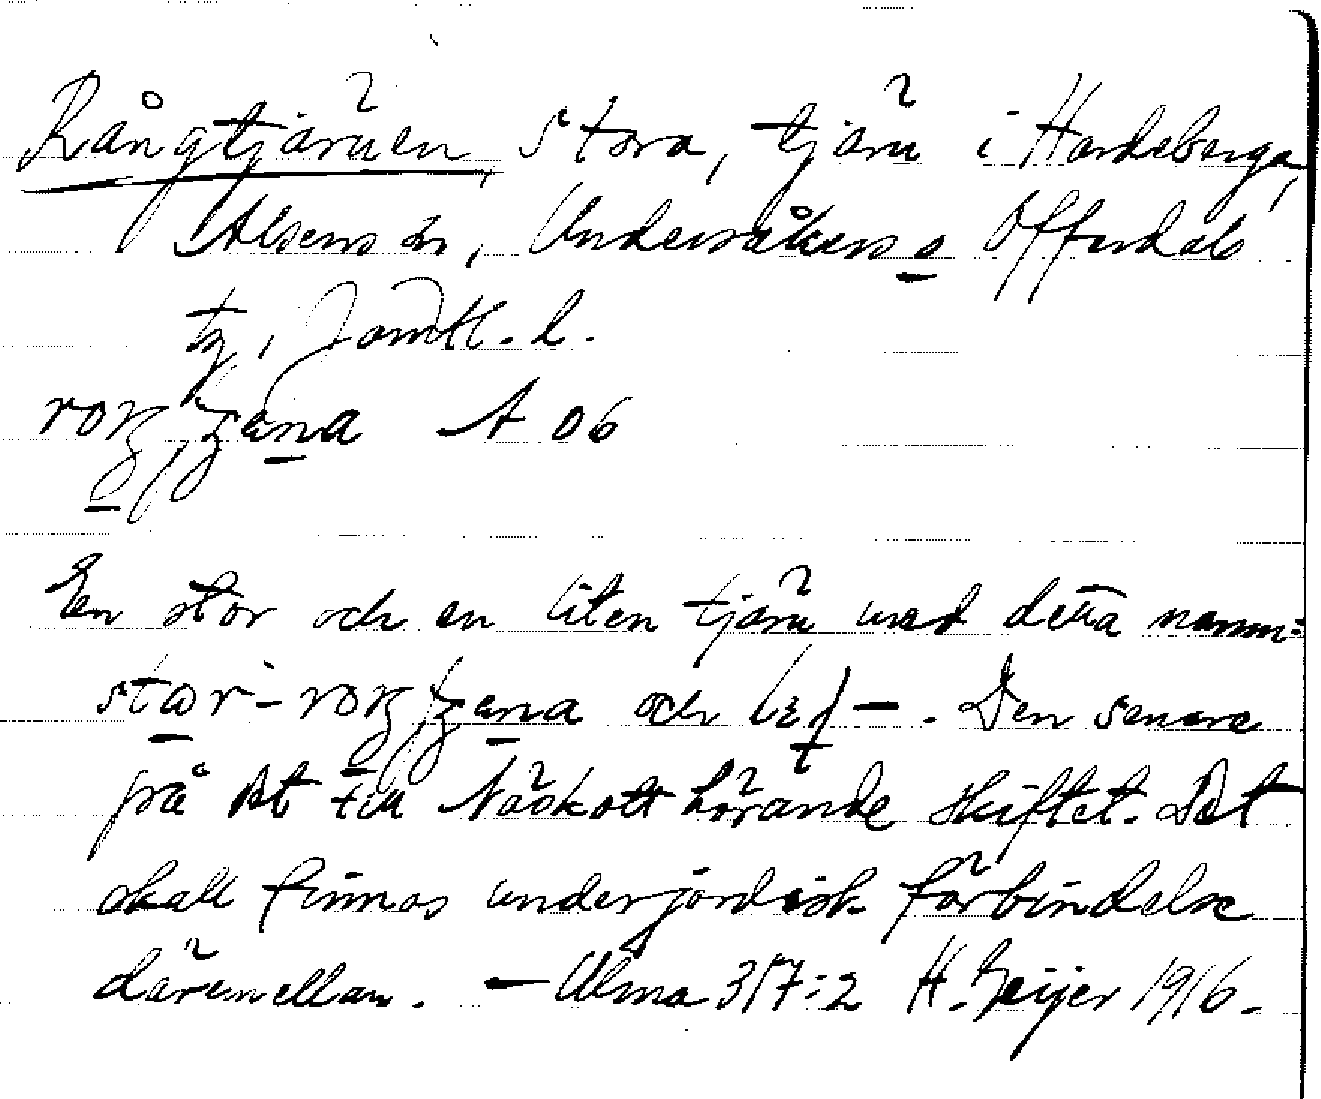 Rångtjärnen, Stora, tjärn i Hardeberga,
Alsens sn, Undersåkers o Offerdals
tg, Jämtl. l.
A 06
En stor och en liten tjärn med detta namn:
och Den senare
på det till Näskott hörande skiftet. Det
skall finnas underjordisk förbindelse
däremellan. — Ulma 317:2 H. Geijer 1916.